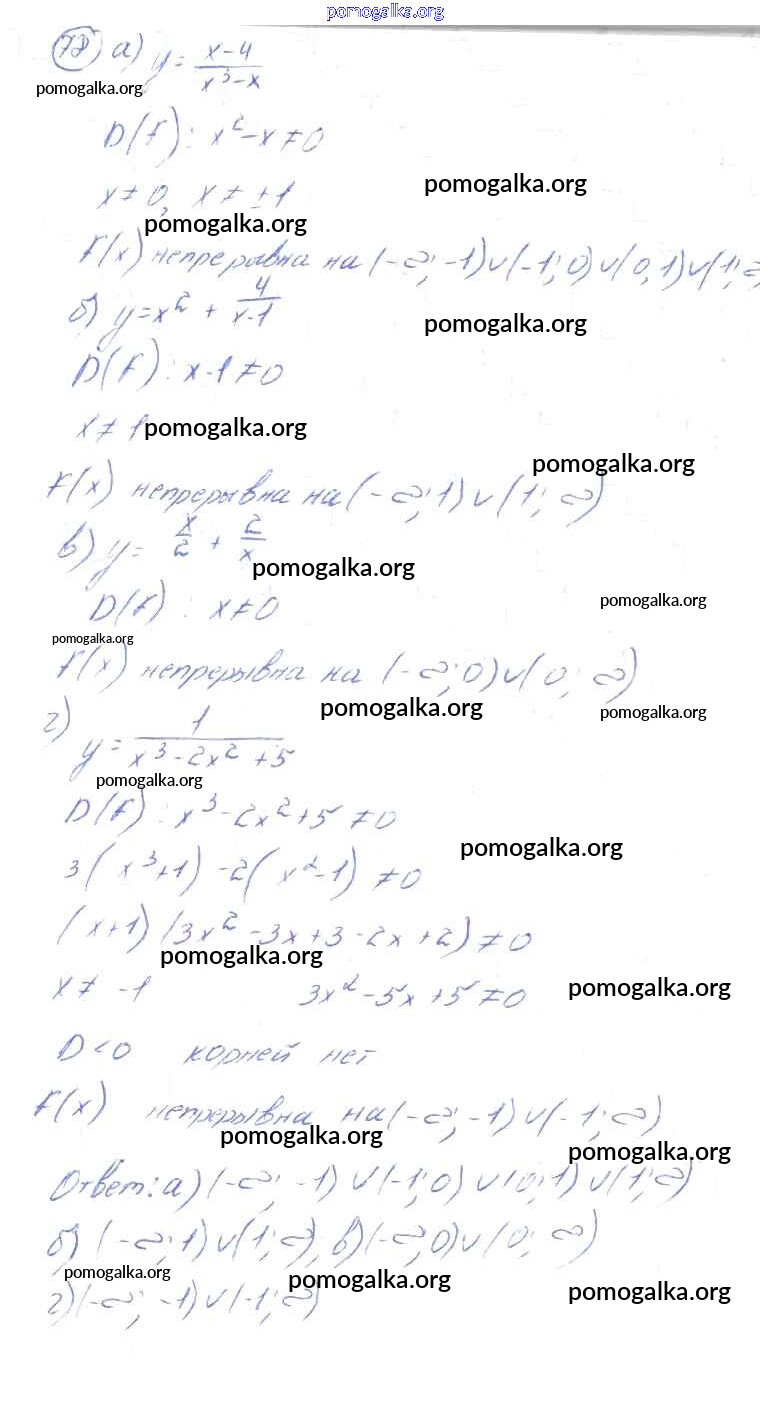 pomogalka.org
78) а) y = (x-4)/(x³-x)
pomogalka.org
D(f): x²-x≠0
pomogalka.org
x≠0, x≠±1
pomogalka.org
f(x) непрерывна на (-∞;-1)∪(-1;0)∪(0;1)∪(1;∞
б) y=x² + 4/(x-1)
pomogalka.org
D(f): x-1≠0
x≠1
pomogalka.org
pomogalka.org
f(x) непрерывна на (-∞;1)∪(1;∞)
в) y = x/2 + 2/x
pomogalka.org
D(f): x≠0
pomogalka.org
pomogalka.org
f(x) непрерывна на (-∞;0)∪(0;∞)
pomogalka.org
pomogalka.org
г) y = 1/(x³-2x²+5)
pomogalka.org
D(f): x³-2x²+5≠0
pomogalka.org
3(x³+1)-2(x²-1)≠0
(x+1)(3x²-3x+3-2x+2)≠0
pomogalka.org
x≠-1 3x²-5x+5≠0
pomogalka.org
D<0 корней нет
f(x) непрерывна на (-∞;-1)∪(-1;∞)
pomogalka.org
pomogalka.org
Ответ: а) (-∞;-1)∪(-1;0)∪(0;1)∪(1;∞)
б) (-∞;1)∪(1;∞), в)(-∞;0)∪(0;∞)
pomogalka.org
pomogalka.org
pomogalka.org
г)(-∞;-1)∪(-1;∞)